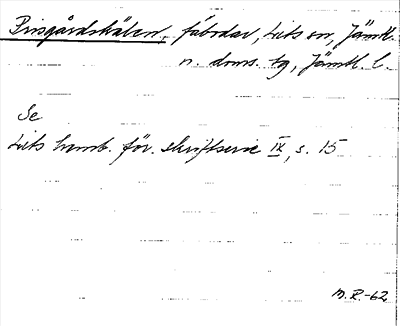 Prisgårdskälen, fäbodar, Lits sn, Jämtl.
n. doms. tg, Jämtl. l.
Se
Lits hemb. för. skriftserie IX, s. 15
M.R.-62